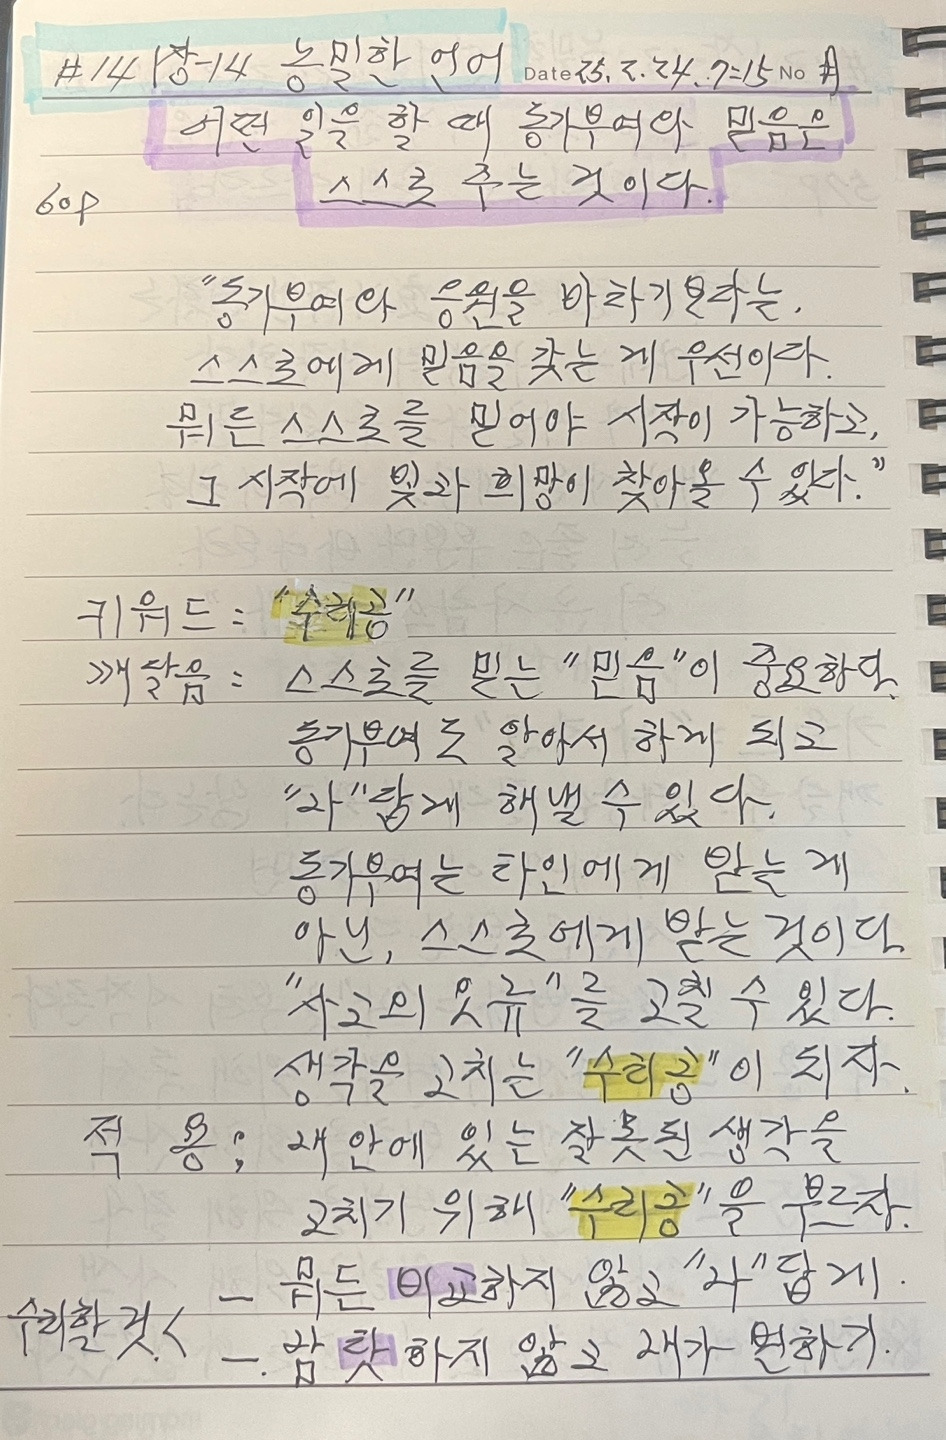 #14 1장-14 농밀한 언어 Date 25. 2. 24. 7:15 No
어떤 일을 할 때 동기부여와 믿음은
스스로 주는 것이다.
60p
"동기부여와 응원을 바라기보다는,
스스로에게 믿음을 갖는 게 우선이다.
뭐든 스스로를 믿어야 시작이 가능하고,
그 시작에 빛과 희망이 찾아올 수 있다."
키워드 : "수리공"
깨달음 : 스스로를 믿는 "믿음"이 중요하다.
동기부여도 알아서 하게 되고
"나"답게 해낼 수 있다.
동기부여는 타인에게 받는 게
아닌, 스스로에게 받는 것이다.
"사고의 오류"를 고칠 수 있다.
생각을 고치는 "수리공"이 되자.
적 용 : 내 안에 있는 잘못된 생각을
고치기 위해 "수리공"을 부르자.
수리할 것. < - 뭐든 비교하지 않고 "나"답게.
-. 남 탓 하지 않고 내가 변하기.